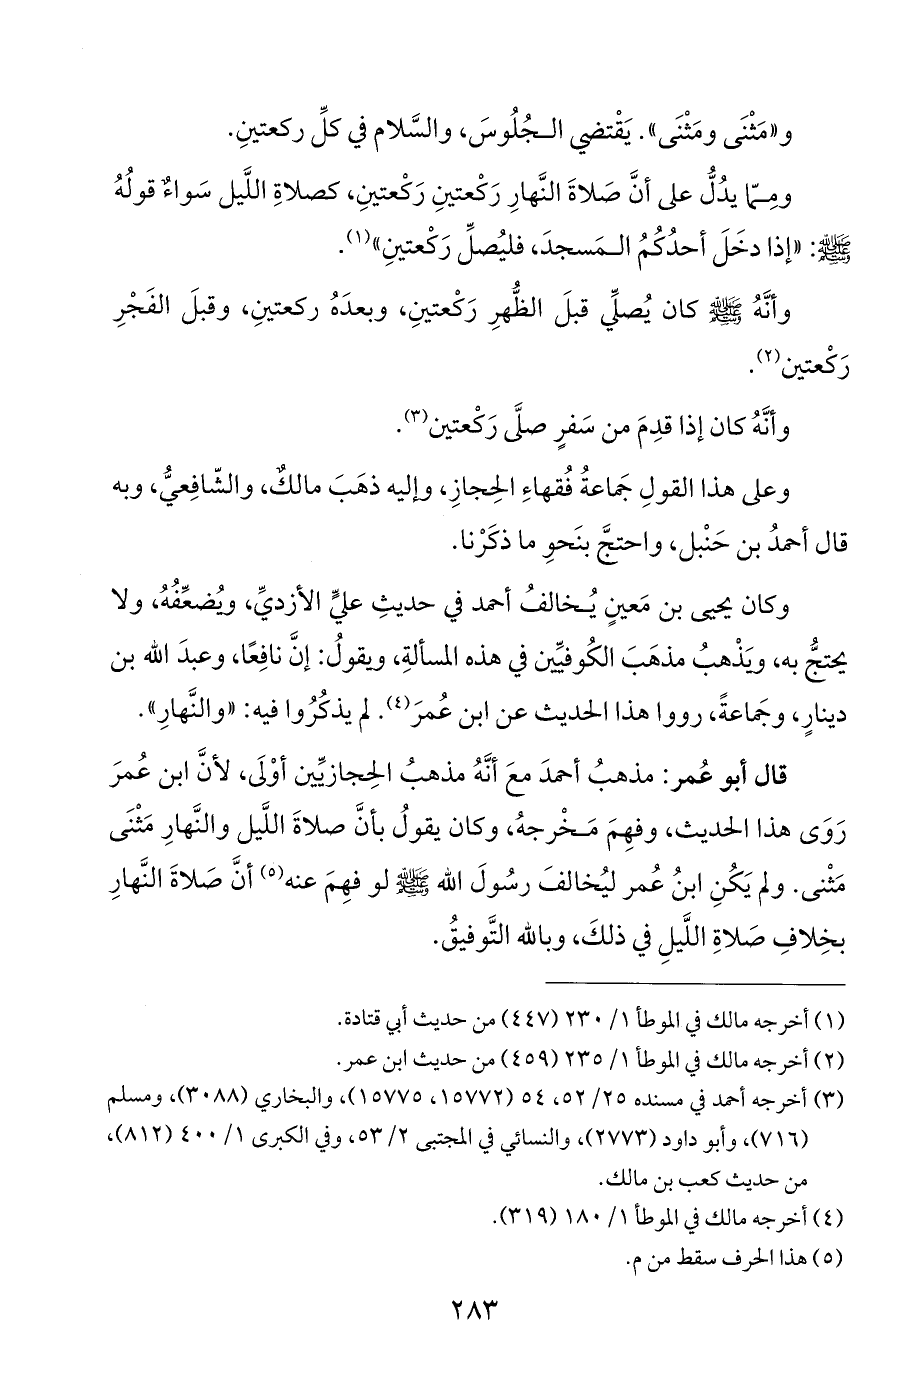 و«مَثْنَى ومَثْنَى». يَقْتضي الـجُلُوسَ، والسَّلام في كلِّ ركعتينِ.
ومِـمّا يدُلُّ على أنَّ صَلاةَ النَّهارِ رَكْعتينِ رَكْعتينِ، كصلاةِ اللَّيل سَواءٌ قولُهُ
ﷺ: «إذا دخَلَ أحدُكُمُ الـمَسجدَ، فليُصلِّ رَكْعتينِ»(١).
وأنَّهُ ﷺ كان يُصلِّي قبلَ الظُّهرِ رَكْعتينِ، وبعدَهُ ركعتينِ، وقبلَ الفَجْرِ
رَكْعتين(٢).
وأنَّهُ كان إذا قدِمَ من سَفرٍ صلَّى رَكْعتين(٣).
وعلى هذا القولِ جَماعةُ فُقهاءِ الحِجازِ، وإليه ذهَبَ مالكٌ، والشّافِعيُّ، وبه
قال أحمدُ بن حَنْبل، واحتجَّ بنَحوِ ما ذكَرْنا.
وكان يحيى بن مَعينٍ يُـخالفُ أحمد في حديثِ عليٍّ الأزديِّ، ويُضعِّفُهُ، ولا
يحتجُّ به، ويَذْهبُ مذهَبَ الكُوفيِّين في هذه المسألةِ، ويقولُ: إنَّ نافِعًا، وعبدَ الله بن
دينارٍ، وجَماعةً، رووا هذا الحديث عن ابن عُمرَ(٤). لم يذكُرُوا فيه: «والنَّهارِ».
قال أبو عُمر: مذهبُ أحمدَ معَ أنَّهُ مذهبُ الحِجازيِّين أوْلَى، لأنَّ ابن عُمرَ
رَوَى هذا الحديث، وفهِمَ مَـخْرجهُ، وكان يقولُ بأنَّ صلاةَ اللَّيل والنَّهارِ مَثْنَى
مَثْنى. ولم يَكُنِ ابنُ عُمر ليُخالفَ رسُولَ الله ﷺ لو فهِمَ عنه(٥) أنَّ صَلاةَ النَّهارِ
بخِلافِ صَلاةِ اللَّيلِ في ذلكَ، وبالله التَّوفيقُ.
(١) أخرجه مالك في الموطأ ١/ ٢٣٠ (٤٤٧) من حديث أبي قتادة.
(٢) أخرجه مالك في الموطأ ١/ ٢٣٥ (٤٥٩) من حديث ابن عمر.
(٣) أخرجه أحمد في مسنده ٢٥/ ٥٢، ٥٤ (١٥٧٧٢، ١٥٧٧٥)، والبخاري (٣٠٨٨)، ومسلم
(٧١٦)، وأبو داود (٢٧٧٣)، والنسائي في المجتبى ٢/ ٥٣، وفي الكبرى ١/ ٤٠٠ (٨١٢)،
من حديث كعب بن مالك.
(٤) أخرجه مالك في الموطأ ١/ ١٨٠ (٣١٩).
(٥) هذا الحرف سقط من م.
٢٨٣